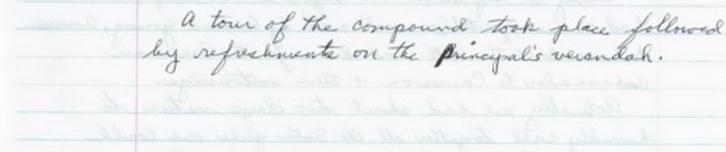 A tour of the compound took place followed
by refreshments on the principal's verandah.